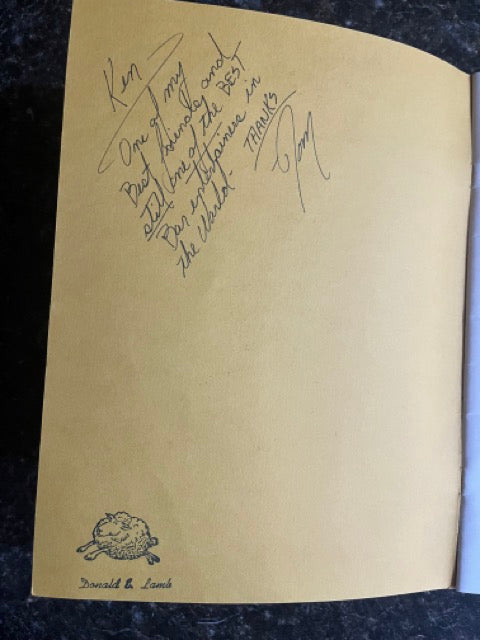 Ken
One of my
Best friends and
still one of the BEST
Bar entertainers in
the World.
THANKS
Tom
Donald E. Lamb